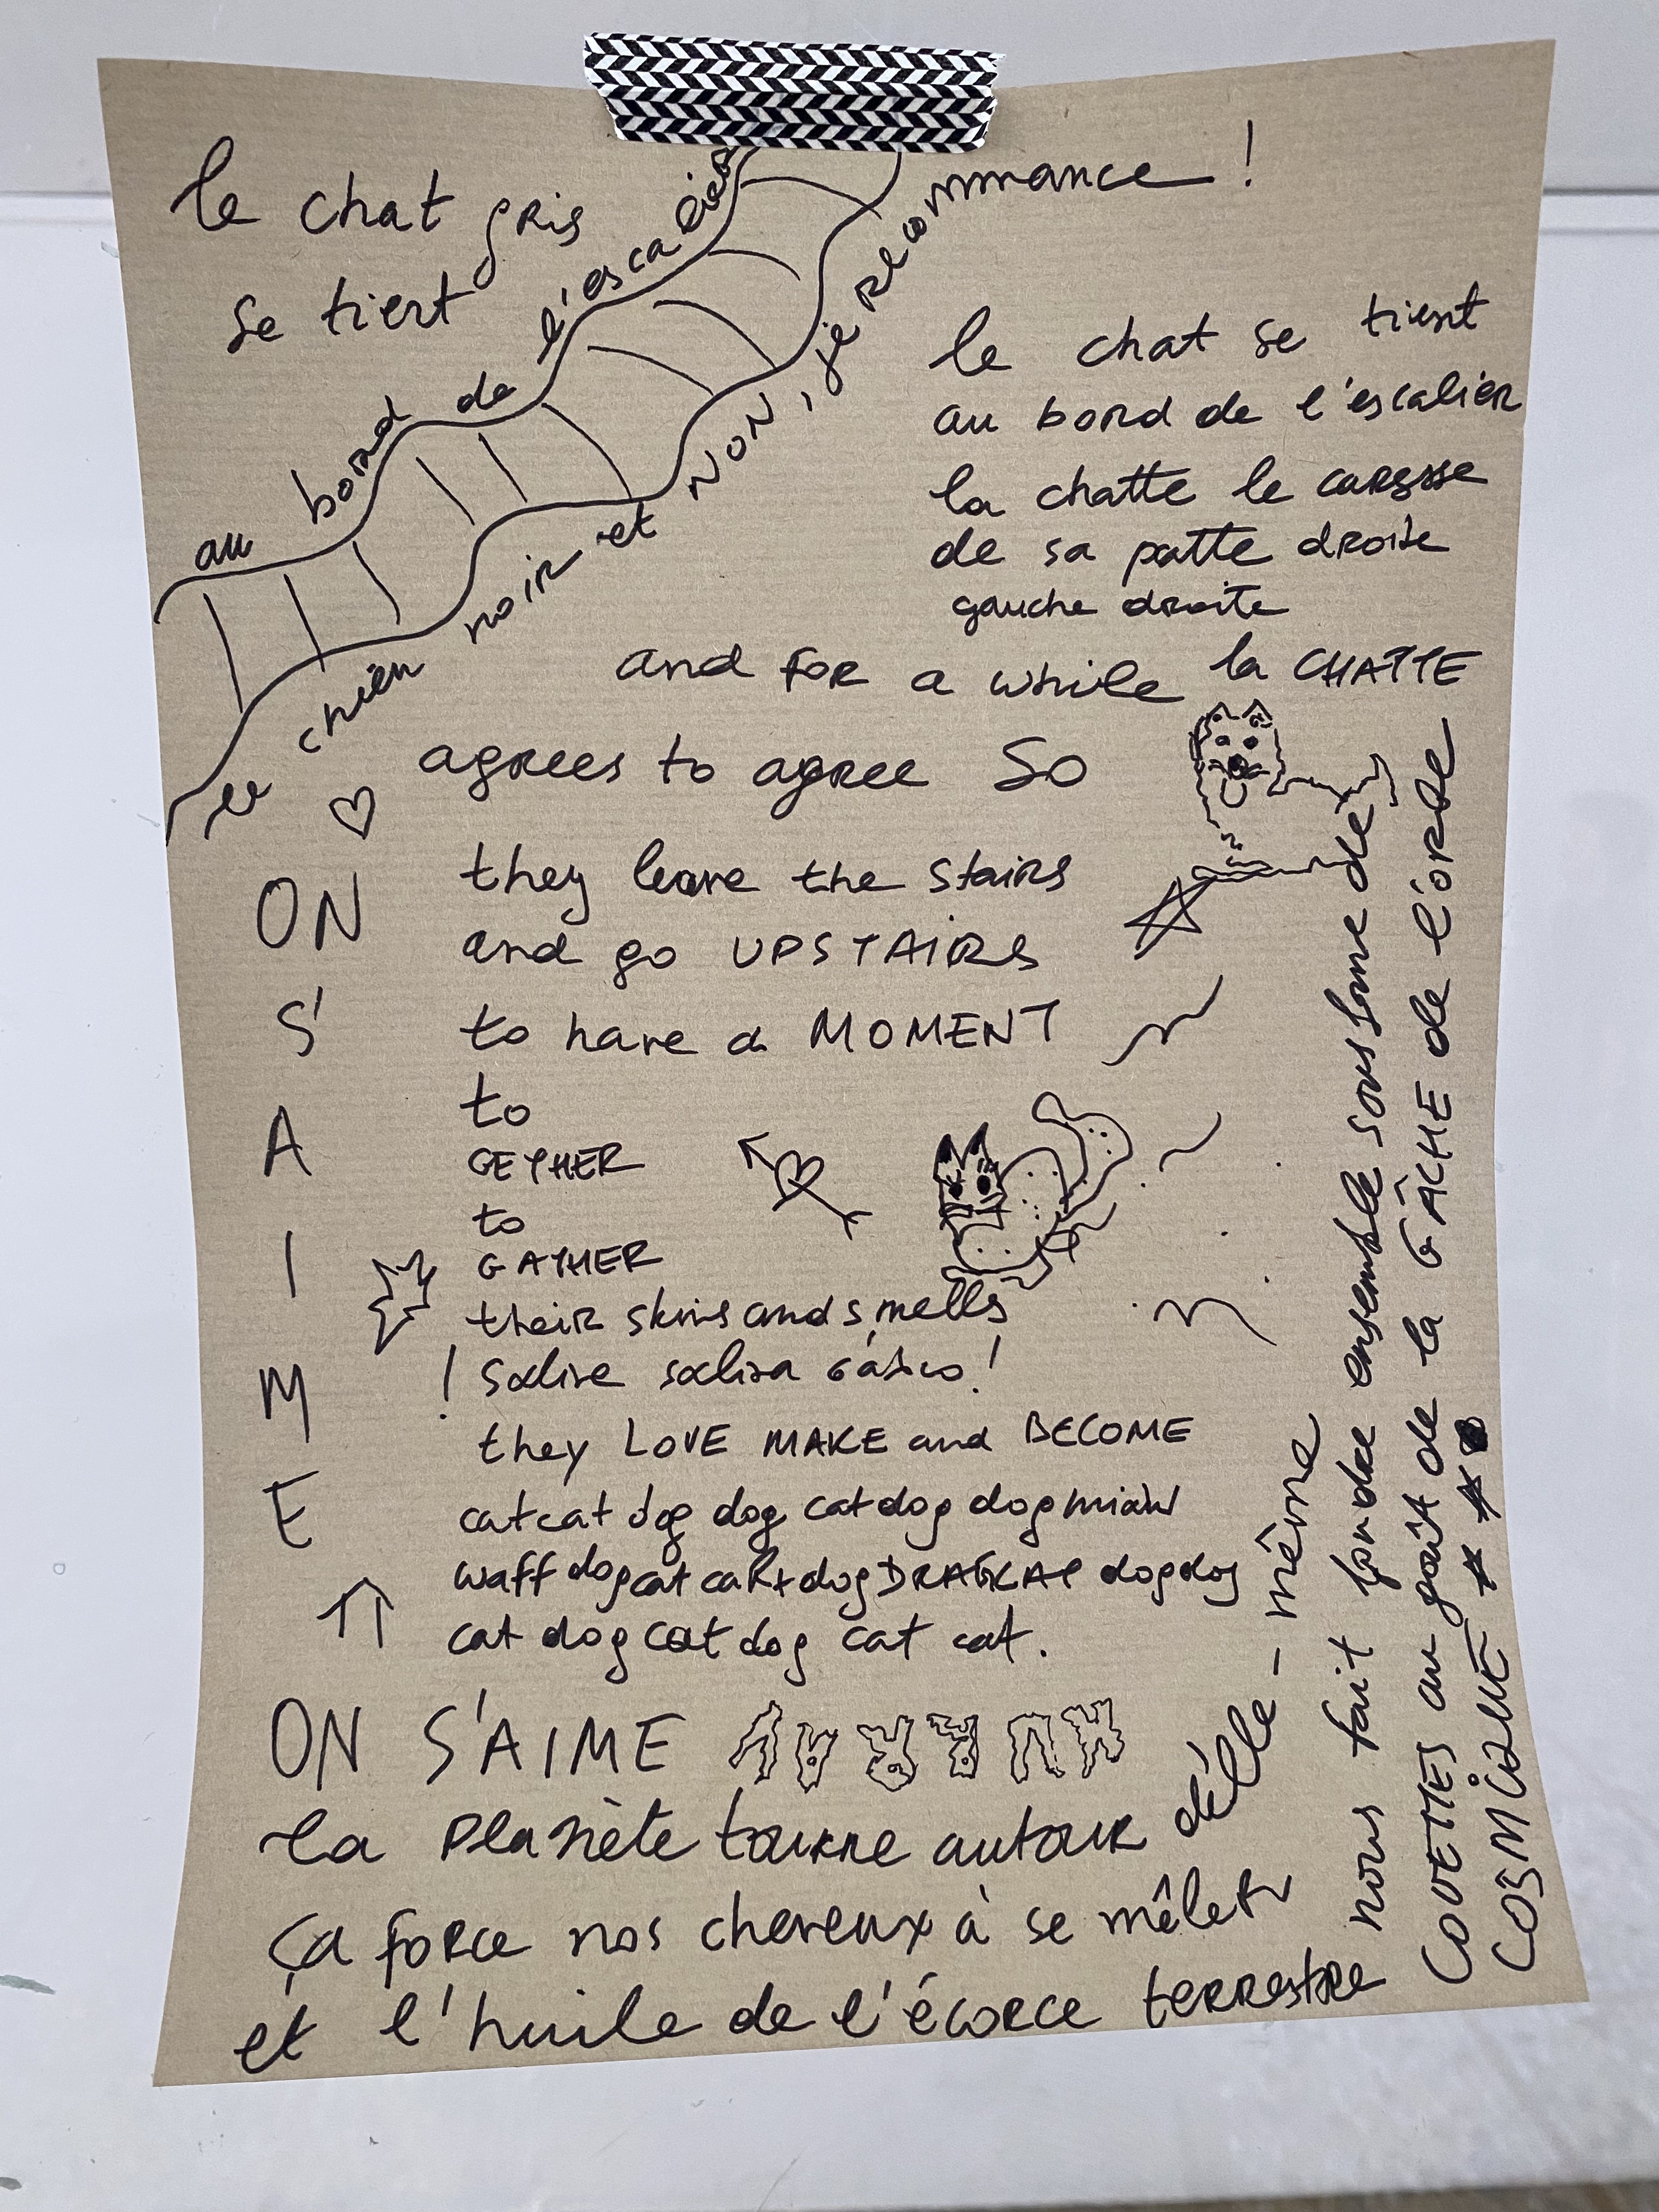 le chat gris
se tient
au bord de l'escalier
le chien noir et NON, je recommmance !
le chat se tient
au bord de l'escalier
la chatte le caresse
de sa patte droite
gauche droite
and FOR a while la CHATTE
agrees to agree SO
they leave the stairs
and go UPSTAIRS
to have a MOMENT
to
GETHER
to
GATHER
their skins and smells
! salive saliva !
they LOVE MAKE and BECOME
catcat dog dog catdog dogmiaw
waff dogcat dog dogdog
cat dogcatdog cat cat.
♡
ON
S'
A
I
M
E
ON S'AIME
la planète tourne autour d'elle-même
ça force nos cheveux à se mêler
et l'huile de l'écorce terrestre
nous fait fondre ensemble sous forme de
COUETTES au goût de la GÂCHE de l'orbe
COSMiQUE